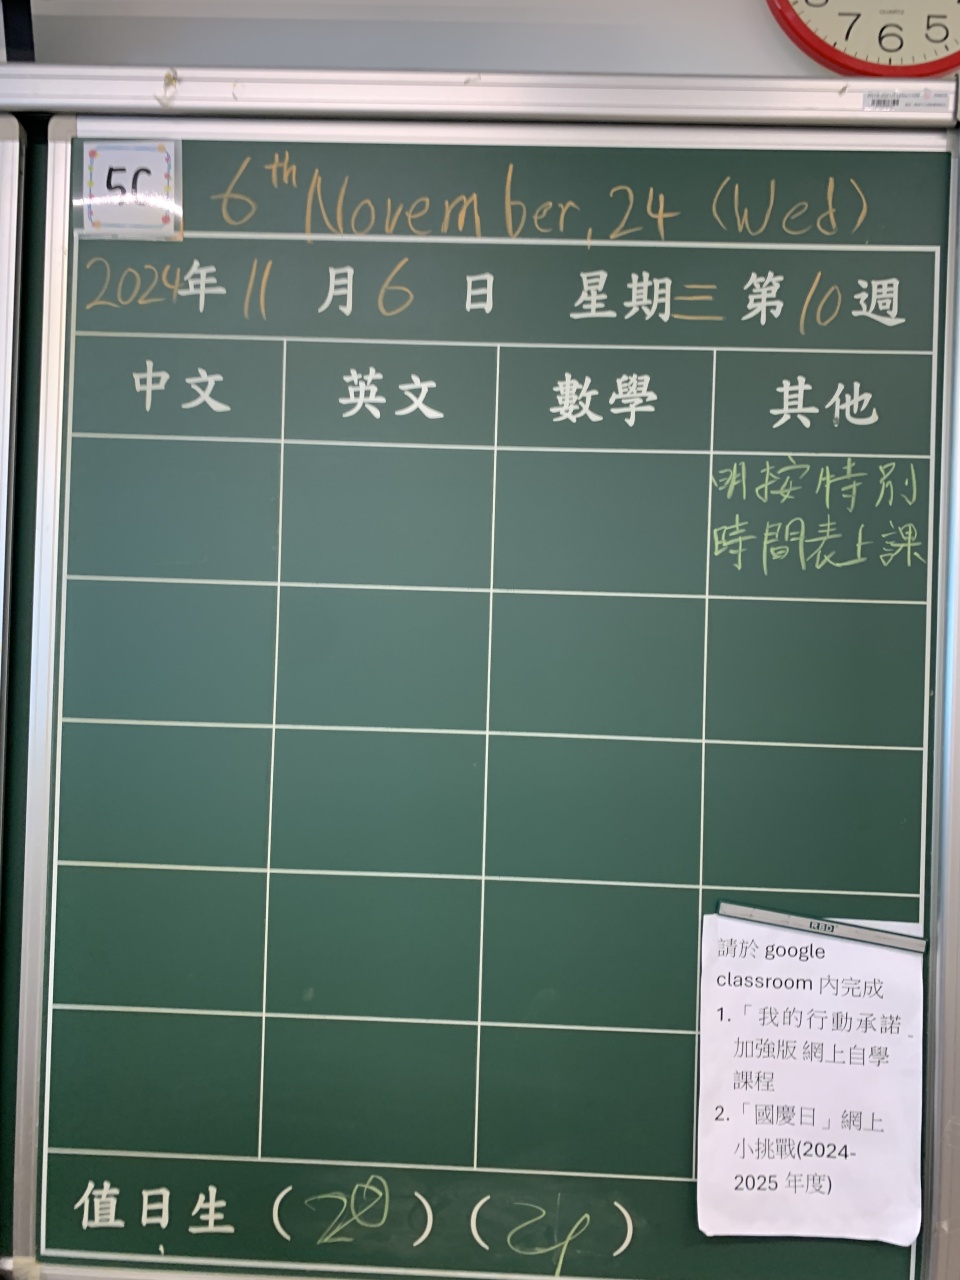 7 6 5
5C
6th November, 24 (Wed)
2024年 11 月 6 日 星期三 第 10 週
中文 英文 數學 其他
明按特別
時間表上課
RBD
請於 google
classroom 內完成
1.「我的行動承諾
加強版 網上自學
課程
2.「國慶日」網上
小挑戰(2024-
2025 年度)
值日生 (20) (24)